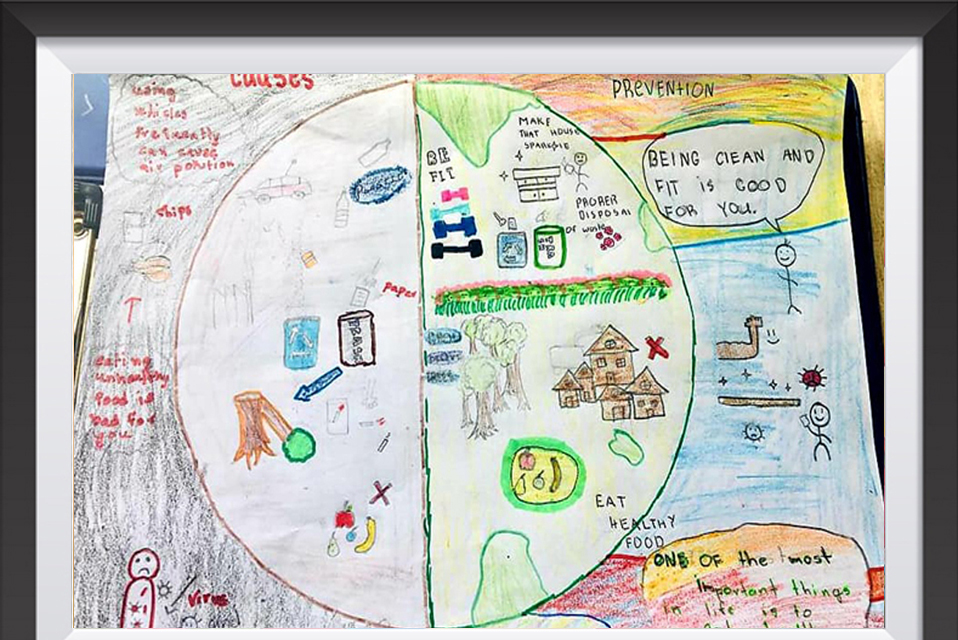 causes
using
vehicles
frequently
can cause
air pollution
chips
paper
TRASH
eating
unhealthy
food is
bad for
you
virus
PREVENTION
MAKE
THAT HOUSE
BE
FIT
PROPER
DISPOSAL
OF waste
BEING CLEAN AND
FIT iS GOOD
FOR YOU.
GROW
MORE
EAT
HEALTHY
FOOD
ONE OF the most
important things
in life is to